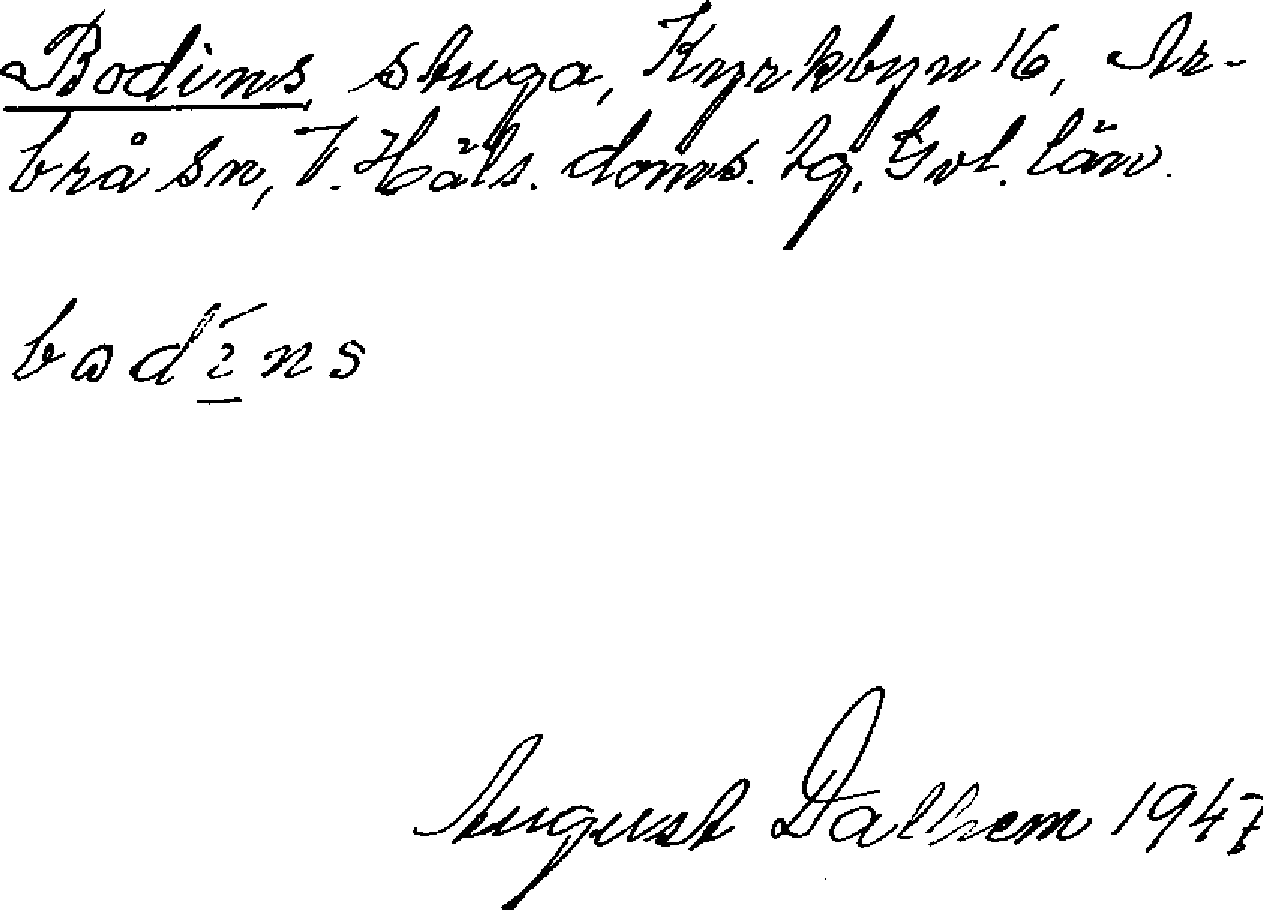 Bodins stuga, Kyrkbyn 16, Ar-
brå sn, V. Häls. doms. tg. Gvl. län.
bodíns
August Dalhem 1947